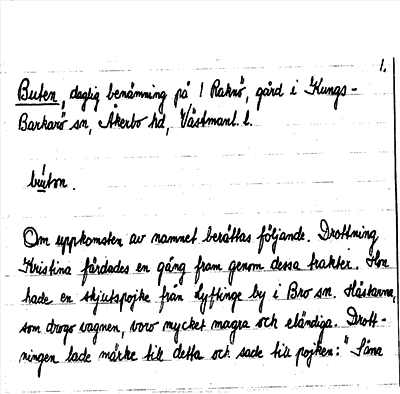 1.
Buten, daglig benämning på 1 Raknö, gård i Kungs-
Barkarö sn, Åkerbo hd, Västmanl. l.
bu̇ton.
Om uppkomsten av namnet berättas följande. Drottning
Kristina färdades en gång fram genom dessa trakter. Hon
hade en skjutspojke från Lyftinge by i Bro sn. Hästarna,
som drogo vagnen, voro mycket magra och eländiga. Drott-
ningen lade märke till detta och sade till pojken: "Såna